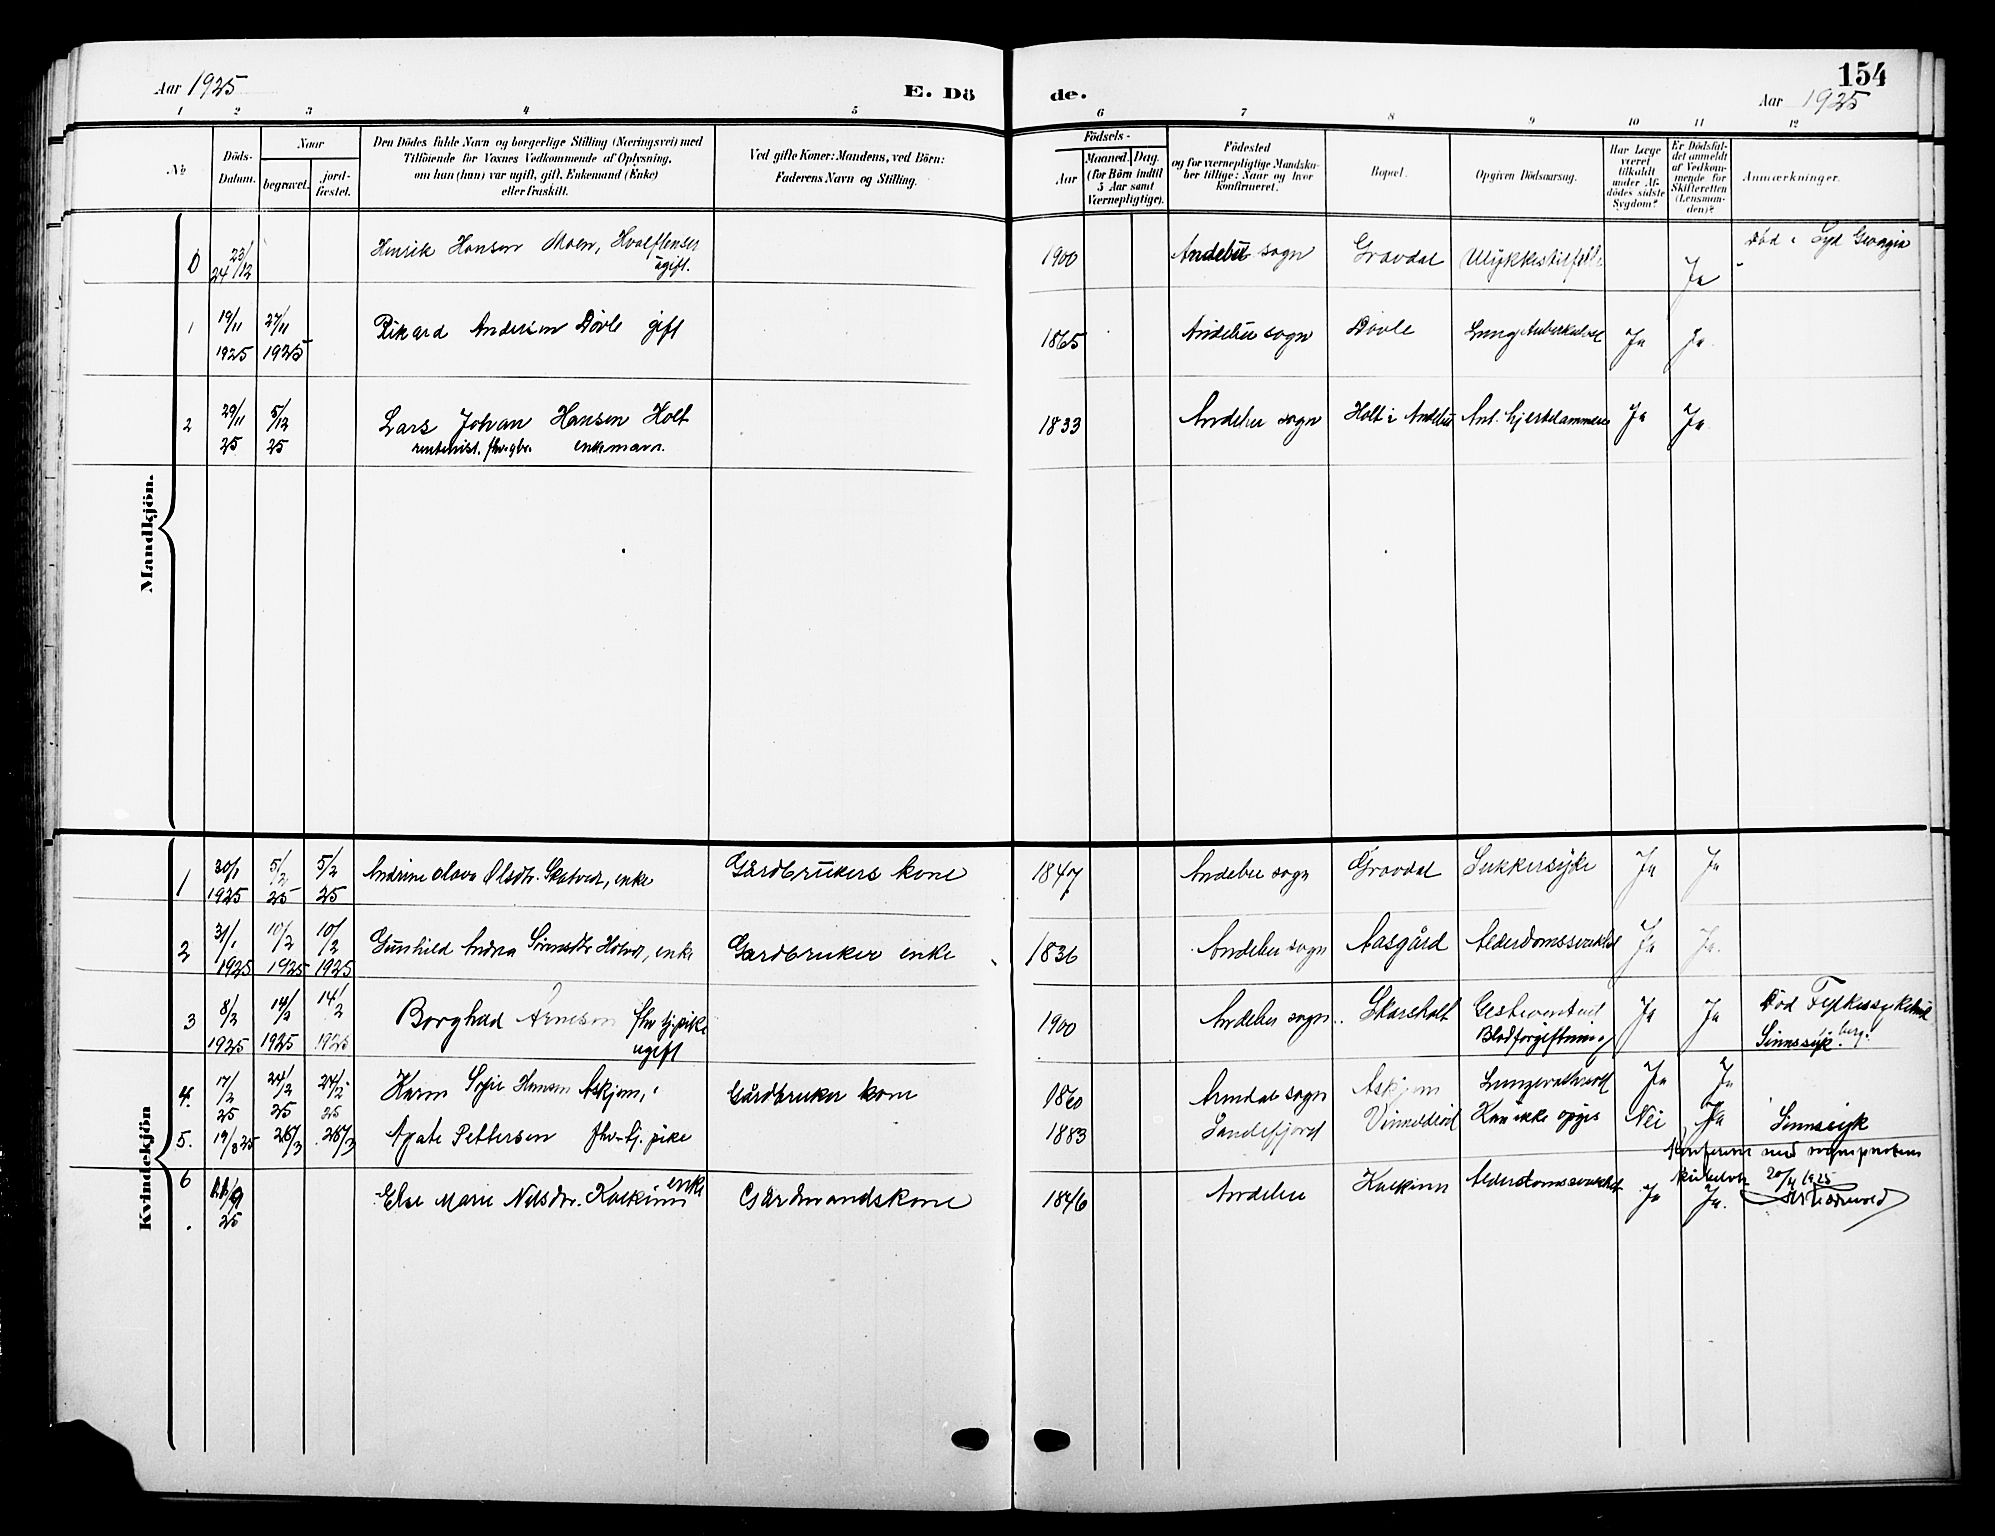 Aar 1925
E. Dö
de.
154
Aar 1925
1 2 3 4 5 6 7 8 9 10 11 12
№
Döds-
Datum.
Naar
begravet.
jord-
fæstet.
Den Dödes fulde Navn og borgerlige Stilling (Næringsvei) med
Tilföiende for Voxnes Vedkommende af Oplysning,
om han (hun) var ugift, gift, Enkemand (Enke)
eller fraskilt.
Ved gifte Koner: Mandens, ved Börn:
Faderens Navn og Stilling.
Födsels-
Aar
Maaned. Dag.
(for Börn indtil
5 Aar samt
Værnepligtige).
Födested
og for værnepligtige Mandska-
ber tillige: Naar og hvor
konfirmeret.
Bopæl.
Opgiven Dödsaarsag.
Har Læge
været
tilkaldt
under Af-
dödes sidste
Sygdom?
Er Dödsfal-
det anmeldt
af Vedkom-
mende for
Skifteretten
(Lensman-
den)?
Anmærkninger.
Mandkjön.
0 24 23/12 Henrik Hansen Moen, Hvalfanger 1900 Andebu sogn Gravdal Ulykkestilfelle Ja Död i Syd Georgia
ugift.
1 19/11 27/11 Rikard Andersen Dövle gift 1865 Andebu sogn Dövle Lungetuberkulose Ja Ja
1925 1925
2 29/11 5/12 Lars Johan Hansen Holt 1833 Andebu sogn Holt i Andebu Ant. hjertelammelse Ja Ja
25 25 rentenist. fhv. gbr. enkemann.
Kvindekjön
1 30/1 5/2 5/2 Andrine Olava Olsdtr. Skatvedt, enke Gårdbrukers kone 1847 Andebu sogn Gravdal Sukkersyke Ja Ja
1925 25 25
2 31/1 10/2 10/2 Gunhild Andrea Sörensdtr Hotvedt, enke Gardbruker enke 1836 Andebu sogn Aasgård Alderdomssvakhet Ja Ja.
1925 1925 1925
3 8/2 14/2 14/2 Borghild Arnesen fhv tj. pike 1900 Andebu sogn Skarsholt Ja Ja Död Fylkessykehus
1925 1925 1925 ugift Blodforgiftning Sinnssyk
4. 17/2 24/2 24/2 Karen Sofie Hansen Askjem, Gårdbruker kone 1860 Arendal sogn Askjem Ja Ja
25 25 25
5. 19/3 25 26/3 26/3 Agate Pettersen fhv. tj. pike 1883 Sandefjord Kan ikke opgis Nei Ja Sinnssyk
Konfereret med
6 25 Else Marie Nilsdtr. enke Gårdmandskone 1846 Andebu Alderdomssvakhet Ja Ja. 20/4 1925